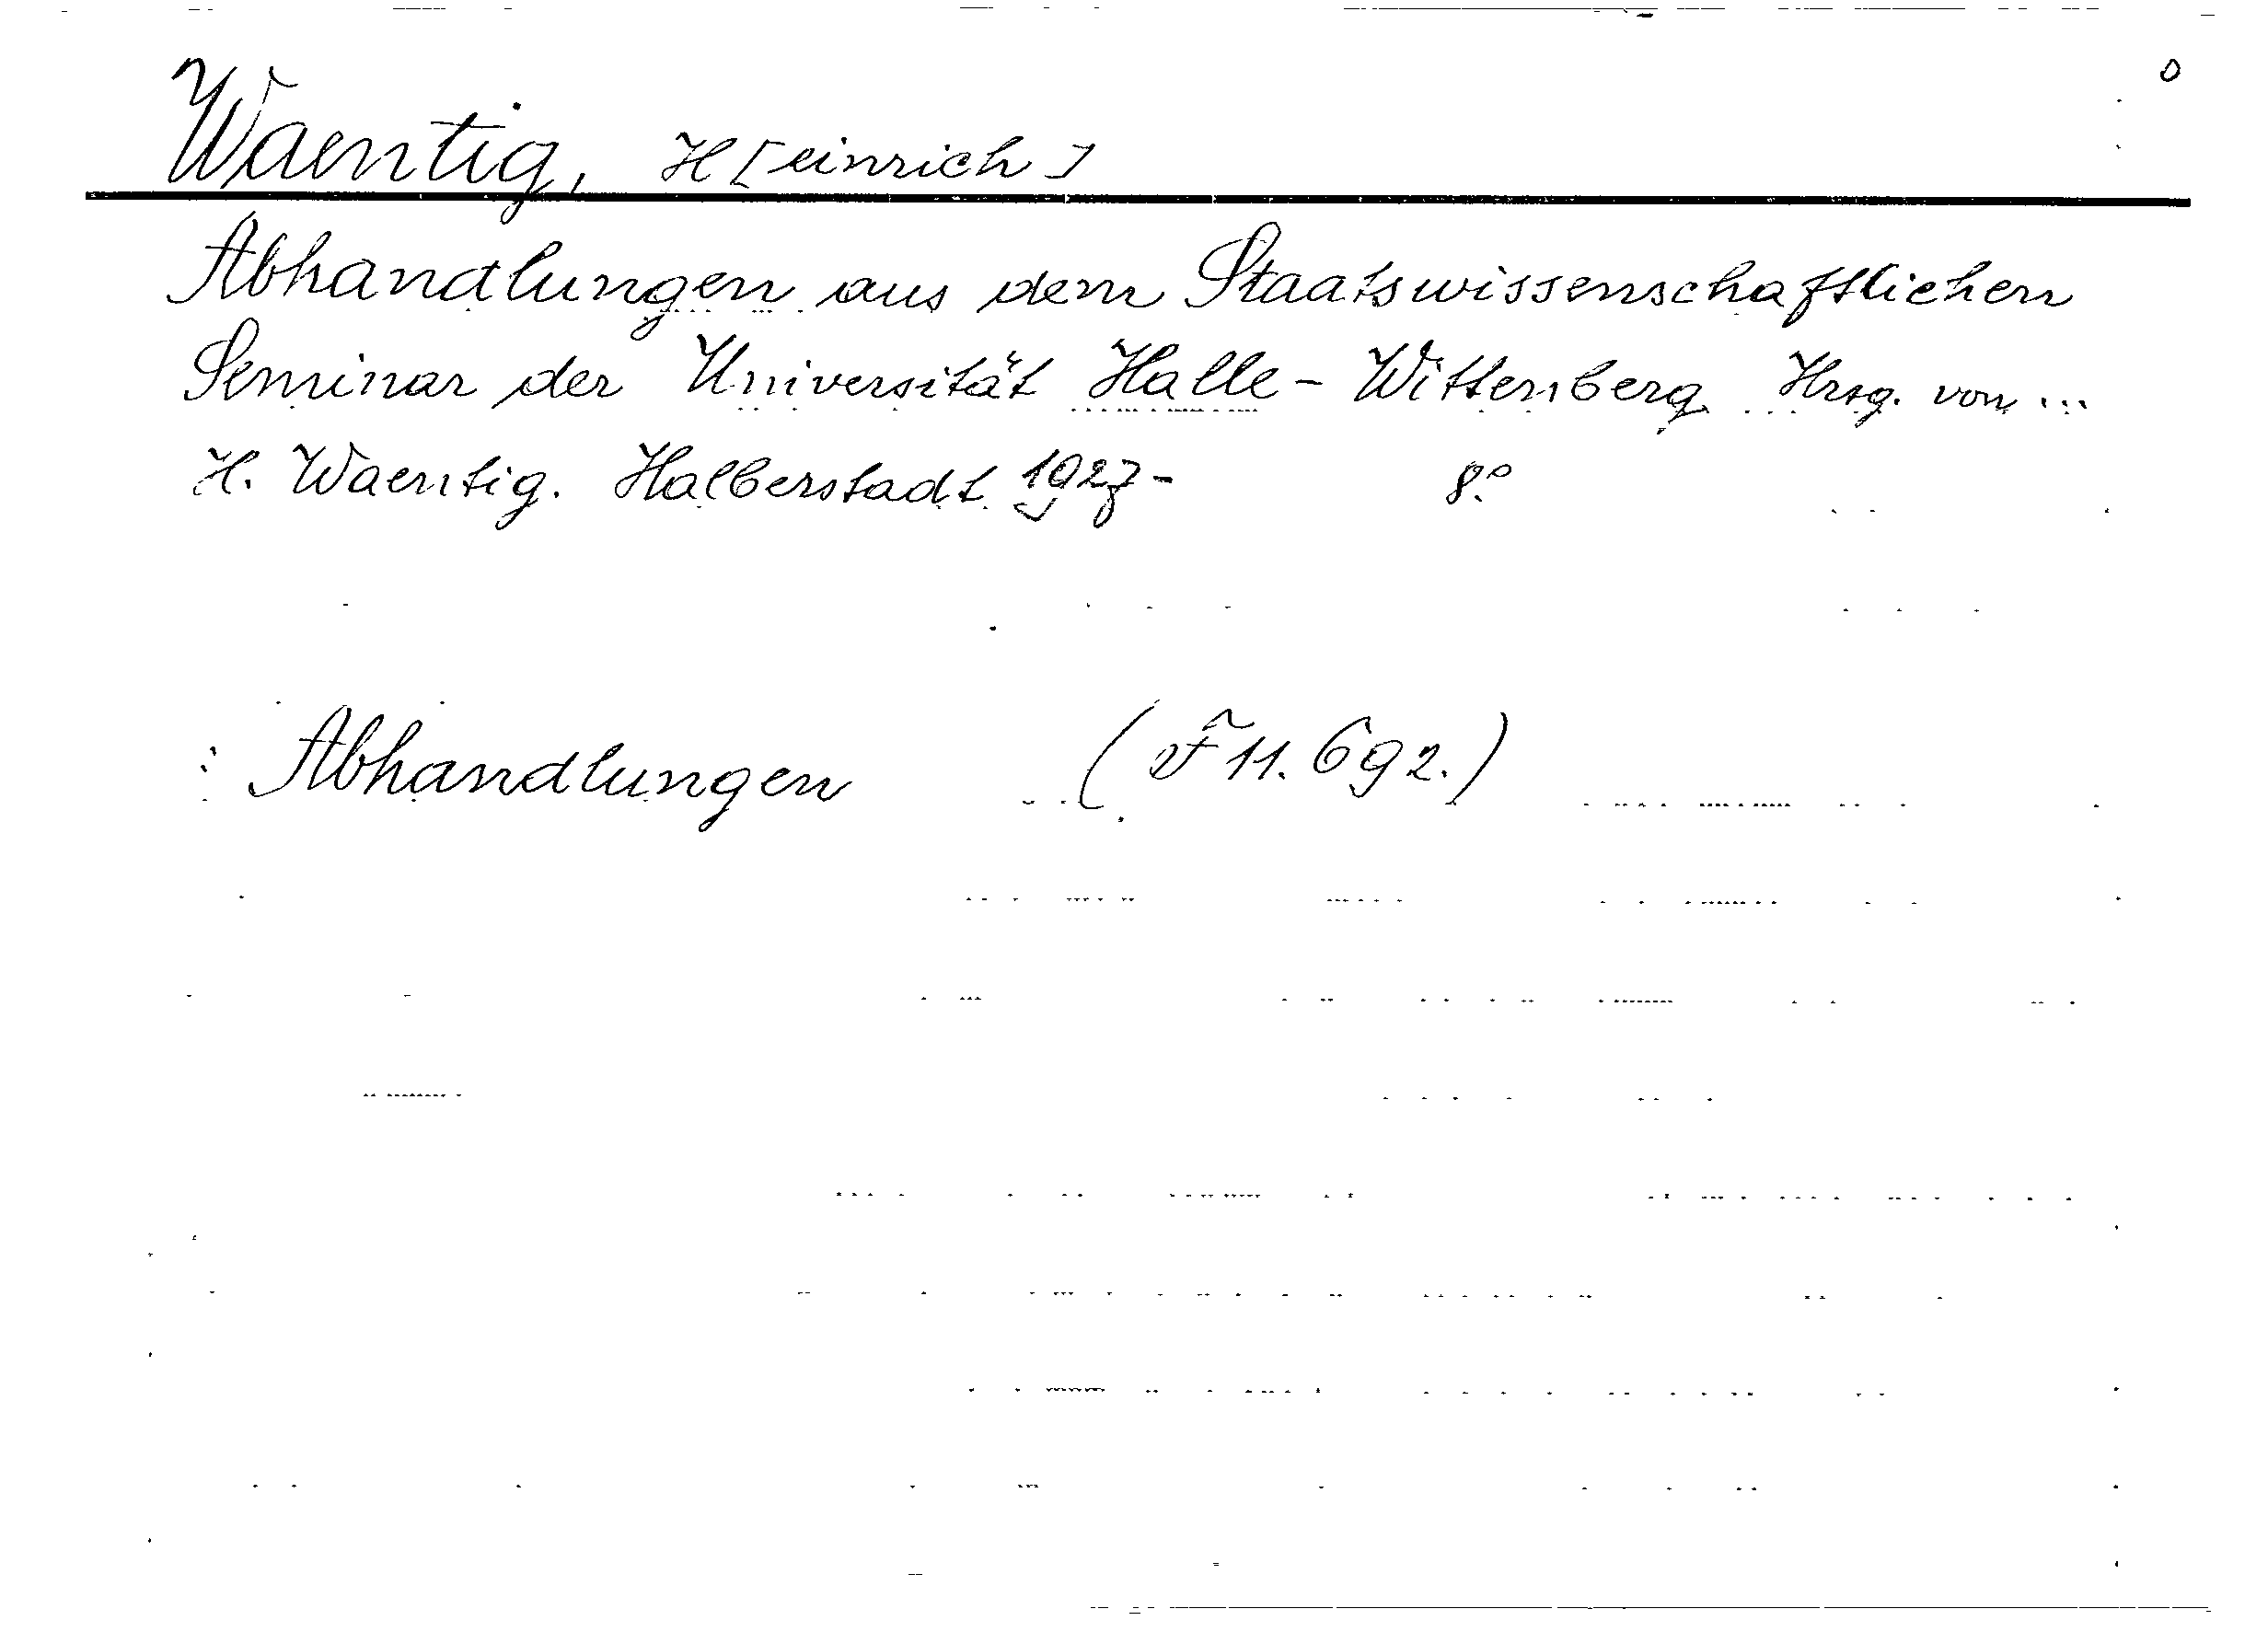 Waentig, H[einrich]
Abhandlungen aus dem Staatswissenschaftlichen
Seminar der Universität Halle-Wittenberg Hrsg. von ...
H. Waentig. Halberstadt 1927- 8°
: Abhandlungen (F 11.692.)